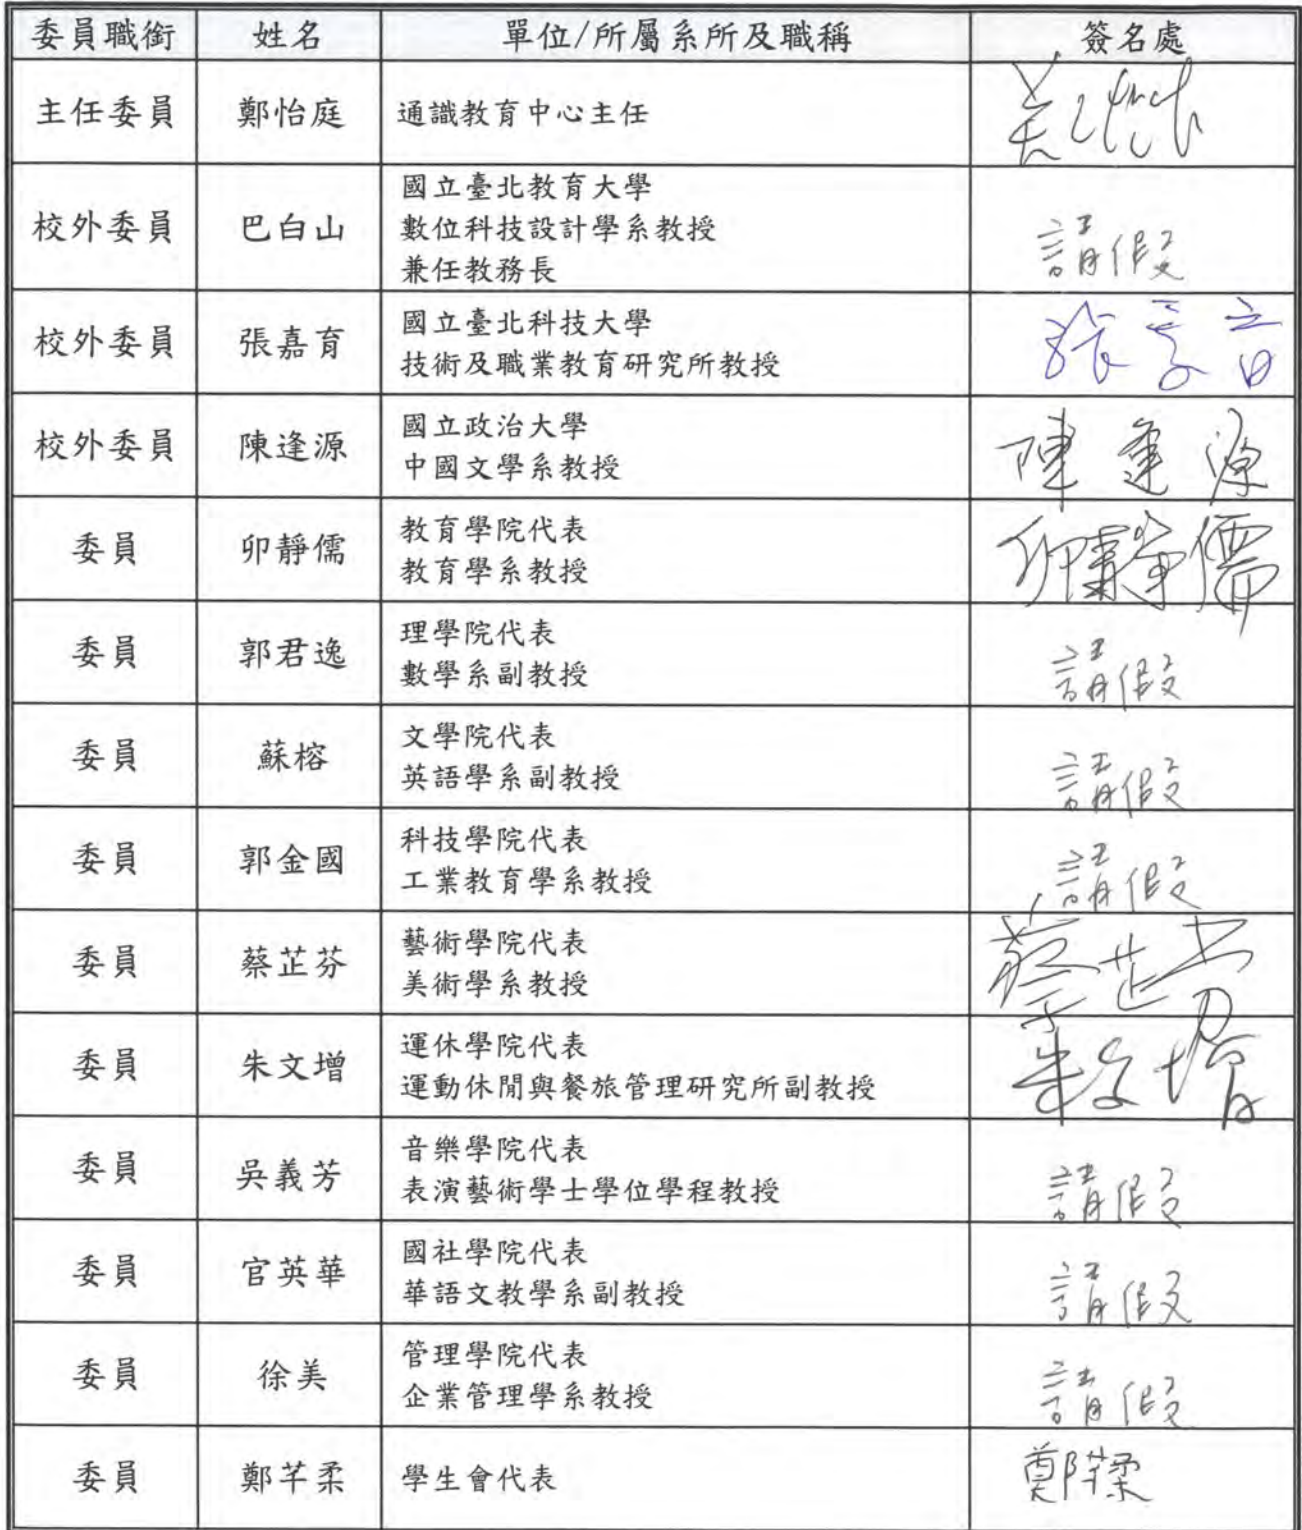 委員職銜 姓名 單位/所屬系所及職稱 簽名處
主任委員 鄭怡庭 通識教育中心主任
校外委員 巴白山 國立臺北教育大學
數位科技設計學系教授
兼任教務長
請假
校外委員 張嘉育 國立臺北科技大學
技術及職業教育研究所教授
張嘉育
校外委員 陳逢源 國立政治大學
中國文學系教授
陳逢源
委員 卯靜儒 教育學院代表
教育學系教授
卯靜儒
委員 郭君逸 理學院代表
數學系副教授
請假
委員 蘇榕 文學院代表
英語學系副教授
請假
委員 郭金國 科技學院代表
工業教育學系教授
請假
委員 蔡芷芬 藝術學院代表
美術學系教授
蔡芷芬
委員 朱文增 運休學院代表
運動休閒與餐旅管理研究所副教授
朱文增
委員 吳義芳 音樂學院代表
表演藝術學士學位學程教授
請假
委員 官英華 國社學院代表
華語文教學系副教授
請假
委員 徐美 管理學院代表
企業管理學系教授
請假
委員 鄭芊柔 學生會代表 鄭芊柔